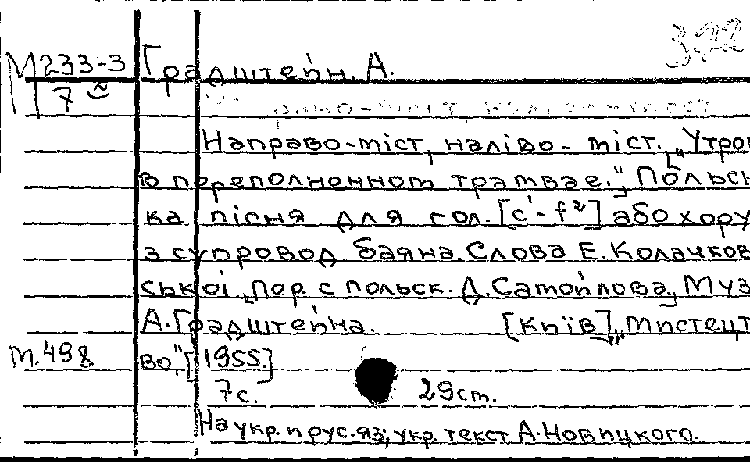 М233-3 Градштейн, А.
7
Направо-міст, наліво- міст. „Утром
в переполненном трамвае.", Польсь
ка пісня для гол. [c'-f²] або хору
з супровод баяна. Слова Е. Колачков
ської, пер. с польск. Д. Самойлова, Муз
А. Градштейна. [Київ], „Мистецт
М.498 во", [1955.]
7с. 29см.
На укр. и рус. яз; укр. текст А. Новицкого.